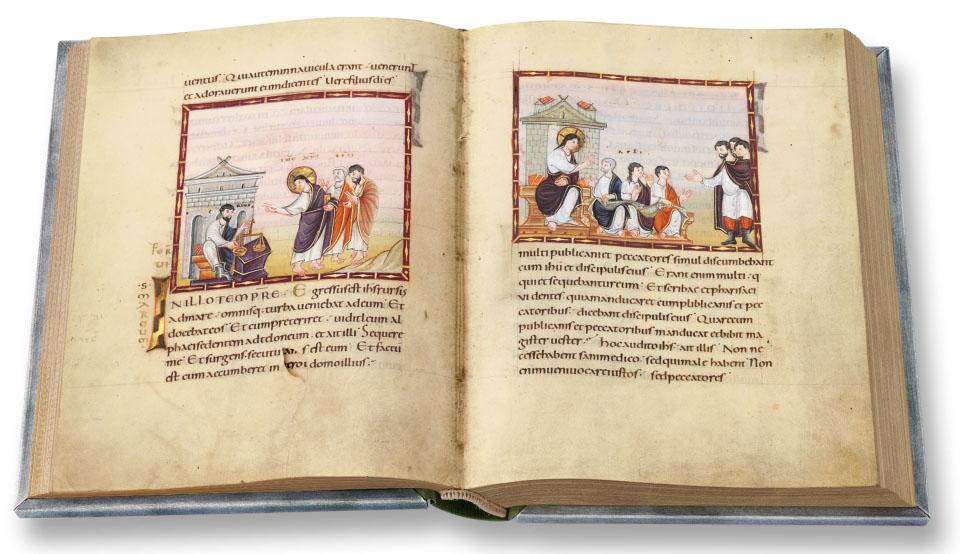 uentus. Quiautem in nauicula erant. uenerunt
et adorauerunt eum dicentes. Uere filius di es.
INILLO TEMPRE. Egressus est ihs rursis
ad mare. omnisq; turba ueniebat ad eum. Et
docebat eos. Et cum preteriret. uidit leuim al
phaei sedentem ad teloneum. et ait illi. Sequere
me. Et surgens. secutus est eum. Et factu
est cum accumberet in domo illius.
S
MARCUM
multi publicani et peccatores simul discumbebant
cum ihu et discipulis eius. Erant enim multi. q
qui et sequebantur eum. Et scribae et pharisaei
uidentes. quia manducaret cum publicanis et pec
catoribus. dicebant discipulis eius. Quare cum
publicanis et peccatoribus manducat et bibit ma
gister uester. hoc audito ihs. ait illis. Non ne
cesse habent sani medico. sed qui male habent. Non
enim ueni uocare iustos. sed peccatores